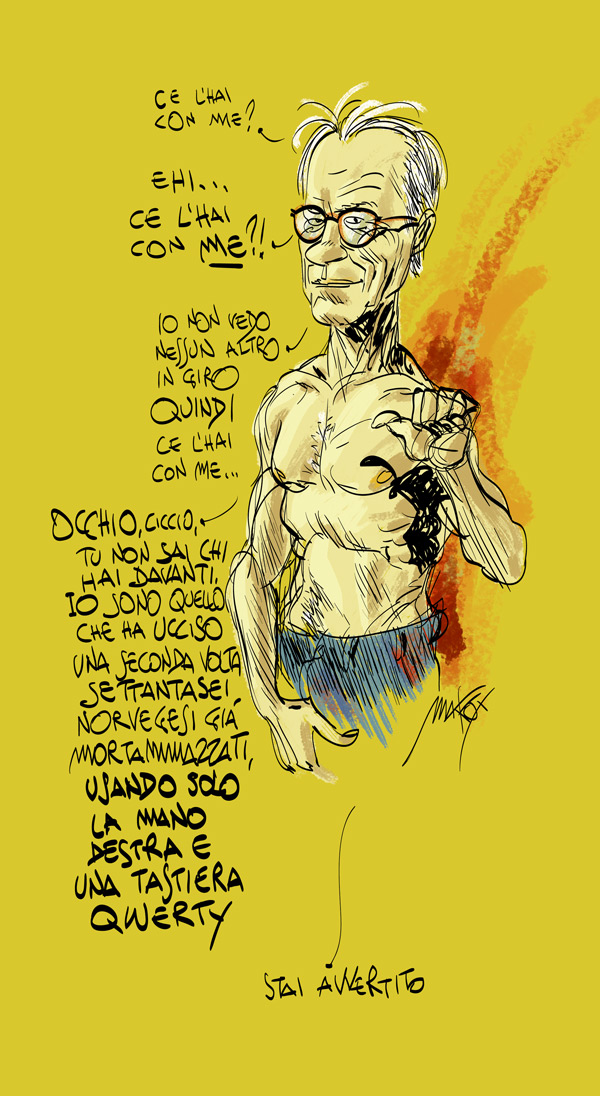 CE L'HAI
CON ME?
EHI...
CE L'HAI
CON ME?!
IO NON VEDO
NESSUN ALTRO
IN GIRO
QUINDI
CE L'HAI
CON ME...
OCCHIO, CICCIO,
TU NON SAI CHI
HAI DAVANTI.
IO SONO QUELLO
CHE HA UCCISO
UNA SECONDA VOLTA
SETTANTASEI
NORVEGESI GIÁ
MORTAMMMAZZATI,
USANDO SOLO
LA MANO
DESTRA E
UNA TASTIERA
QWERTY
MAKKOX
STAI AVVERTITO